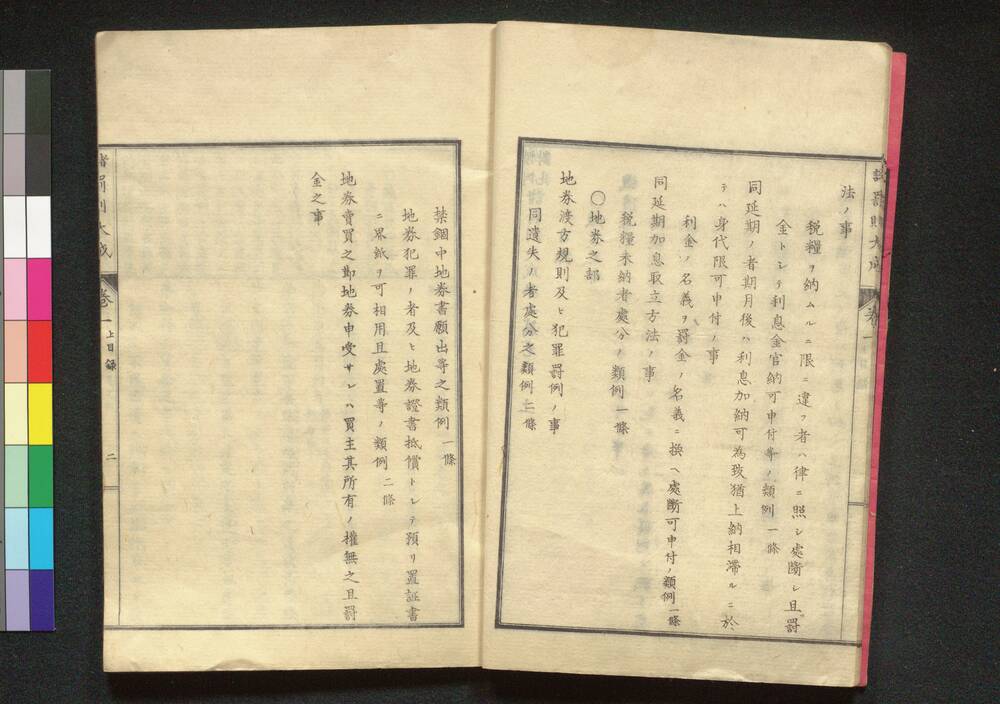 法ノ事
税糧ヲ納ムルニ限ニ違フ者ハ律ニ照シ處斷シ且罰
金トシテ利息金官納可申付等ノ類例 一條
同延期ノ者期月後ハ利息加納可為致猶上納相滯ルニ於
テハ身代限可申付ノ事
利金ノ名義ヲ罰金ノ名義ニ換ヘ處斷可申付ノ類例 一條
同延期加息取立方法ノ事
税糧未納者處分ノ類例 一條
○地券之部
地券渡方規則及ヒ犯罪罰例ノ事
同遺失ノ者處分之類例 二條
禁錮中地券書願出等之類例 一條
地券犯罪ノ者及ヒ地券證書抵償トシテ預リ置証書
ニ界紙ヲ可相用且處置等ノ類例 二條
地券賣買之節地券申受サレハ買主其所有ノ權無之且罰
金之事
卷一
上目錄
二